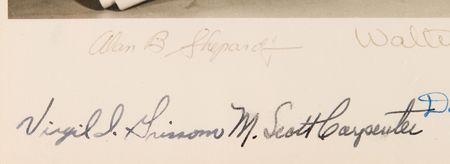 Alan B Shepard Jr Walte
Virgil I. Grissom M. Scott Carpenter D